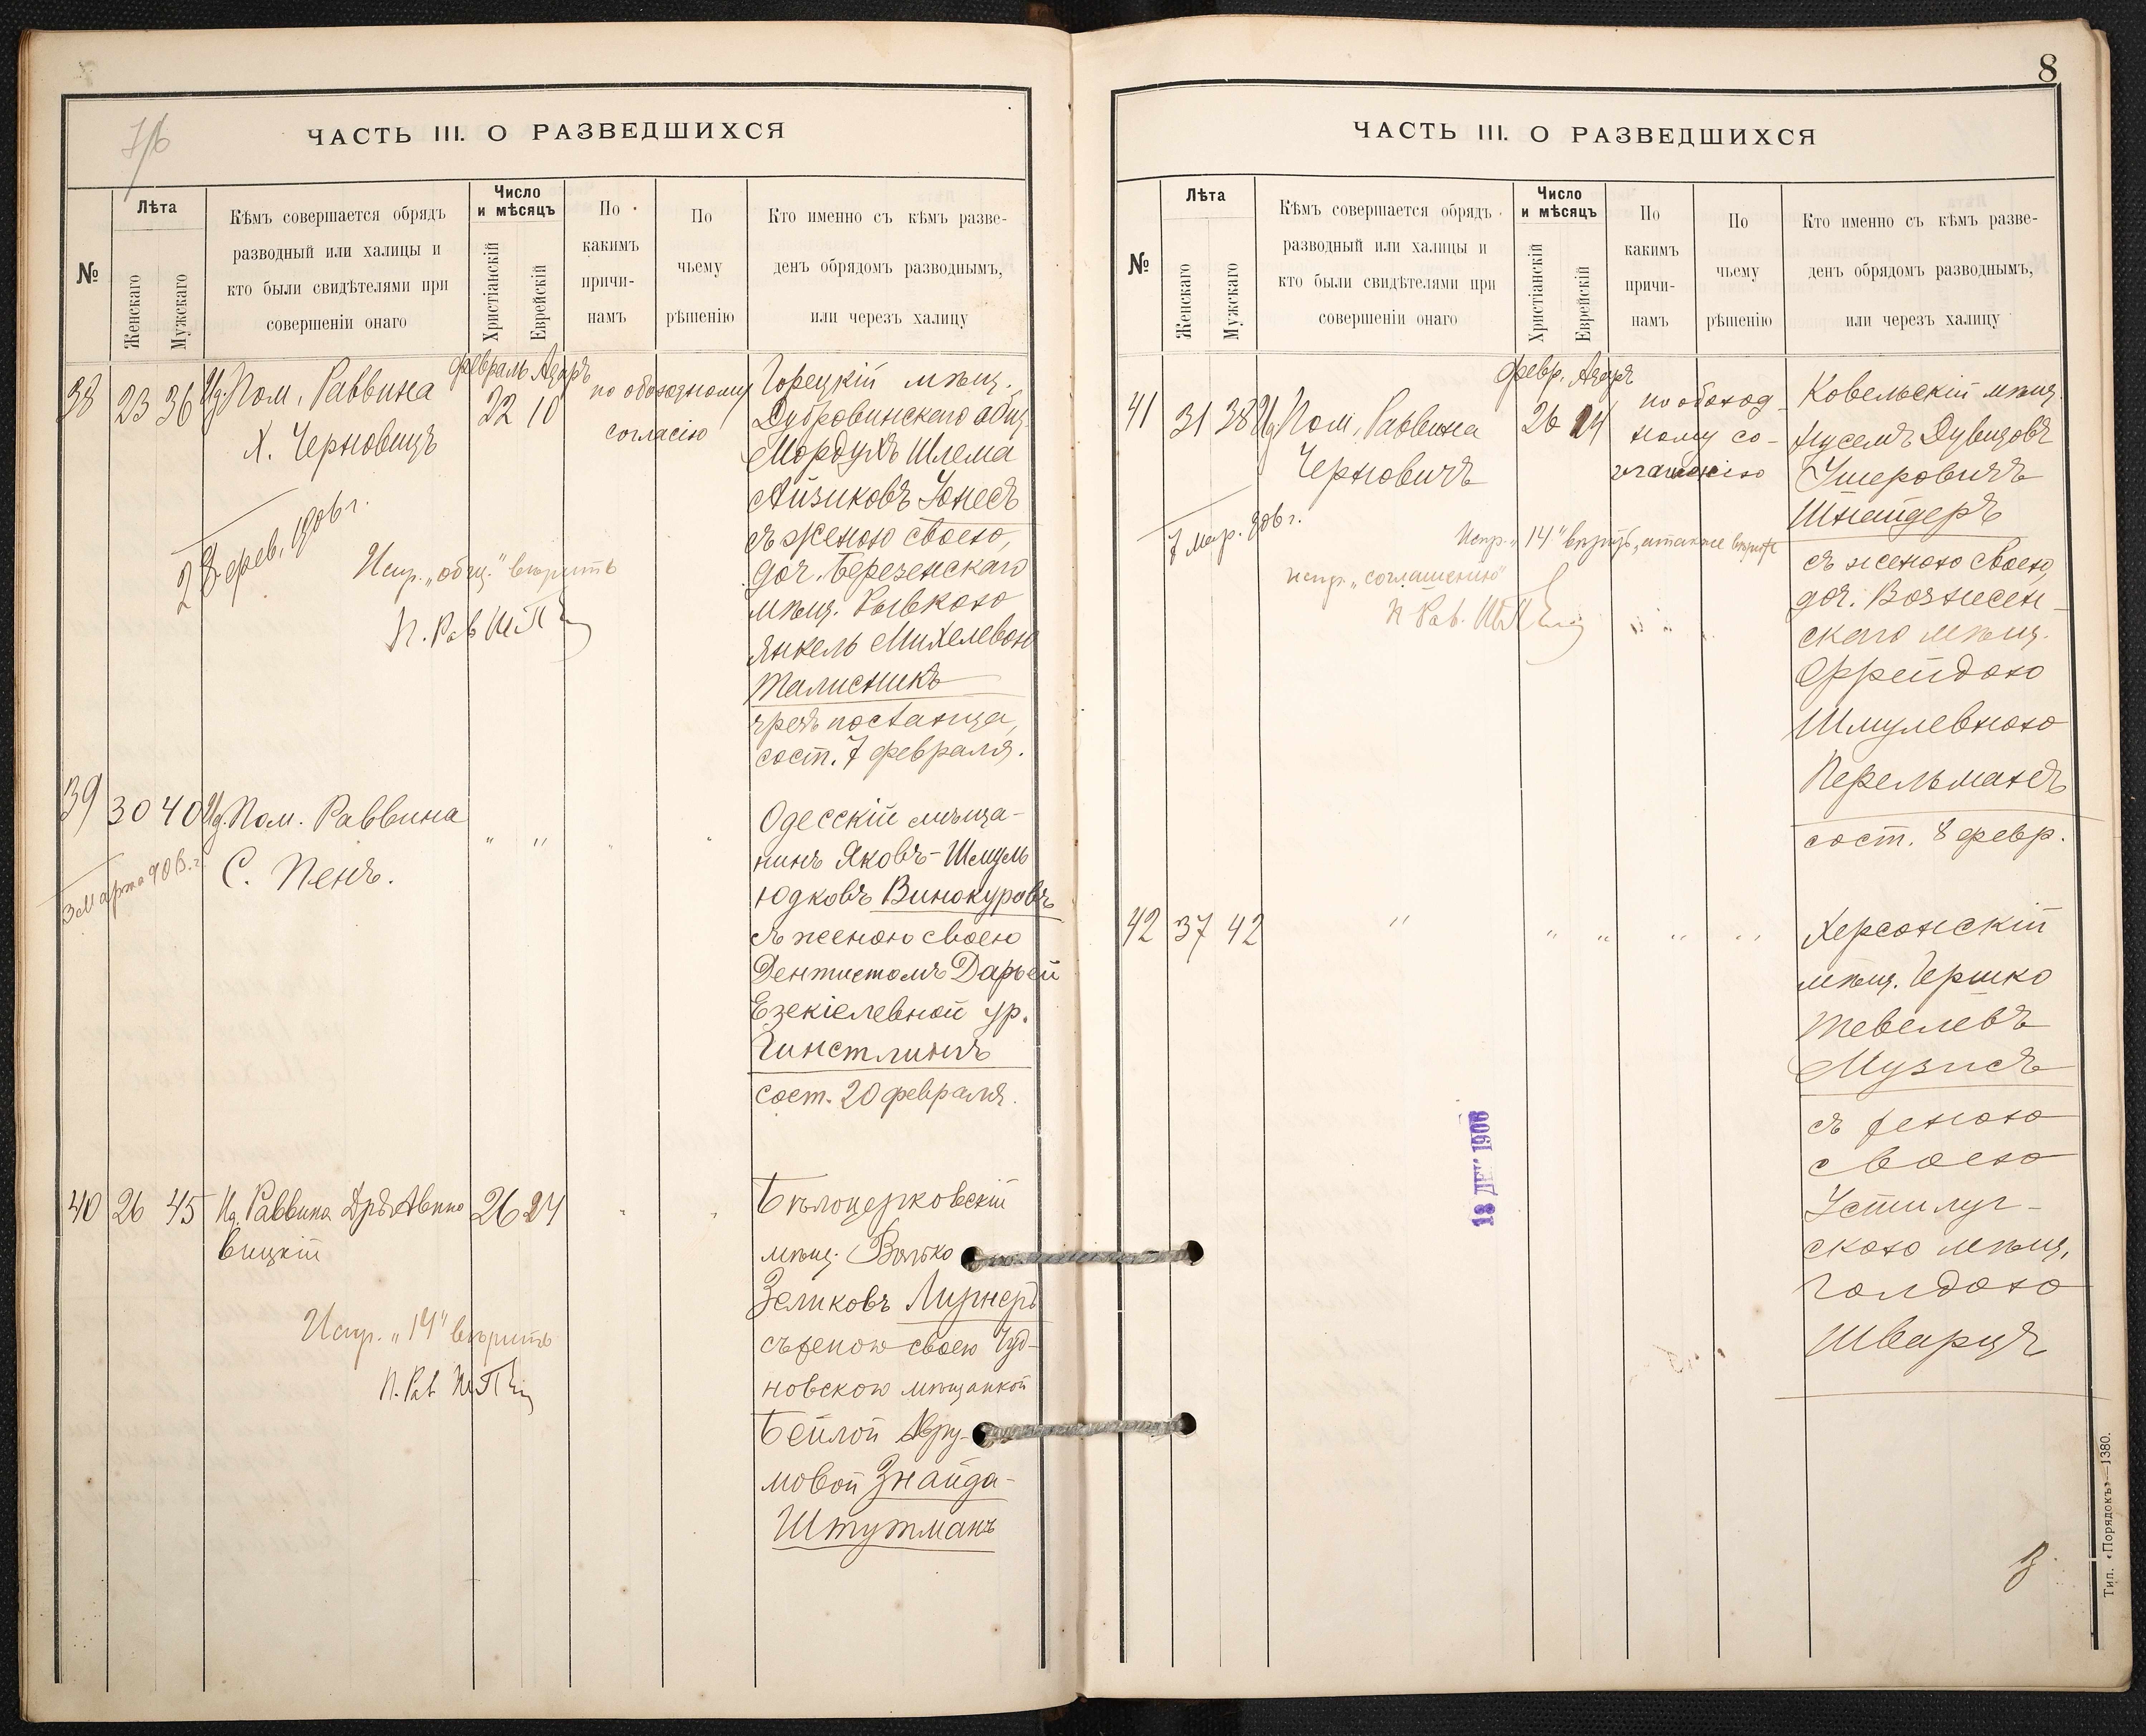 7/б
ЧАСТЬ III. О РАЗВЕДШИХСЯ
№
Лѣта
Женскаго
Мужскаго
Кѣмъ совершается обрядъ
разводный или халицы и
кто были свидѣтелями при
совершеніи онаго
Число
и мѣсяцъ
Христіанскій
Еврейскій
По
какимъ
причи-
намъ
По
чьему
рѣшенію
Кто именно съ кѣмъ разве-
денъ обрядомъ разводнымъ,
или черезъ халицу
38 23 36 Пом. Раввина
Х. Черновицъ
февраль Адаръ
22 10
по обоюдному
согласію
Горецкій мѣщ.
Дубровинскаго общ.
Мордухъ Шлема
Айзиковъ Іонесъ
съ женою своею,
доч. Березенскаго
мѣщ. Рывкою
Янкель Михелевою
Талисникъ
чрезъ посланца,
сост. 7 февраля.
28 фев. 1906 г.
Испр. „общ.“ вѣрить
П. Рав
39 30 40 Пом. Раввина
С. Пенъ.
" "
3 Марта 906 г.
Одесскій мѣща-
нинъ Яковъ-Шмуль
Юдковъ Винокуровъ
съ женою своею
Дентистомъ Дарьей
Езекіелевной ур.
Гинстлингъ
сост. 20 февраля.
40 26 45 Раввина Дръ Авино
вицкій
26 24
Бѣлоцерковскій
мѣщ. Волько
Зеликовъ Лирнеръ
съ женою своею Чуд-
новскою мѣщанкой
Бейлой Авру-
мовой Знайда-
Штутманъ
Испр. „14“ вѣрить
П. Рав
8
ЧАСТЬ III. О РАЗВЕДШИХСЯ
№
Лѣта
Женскаго
Мужскаго
Кѣмъ совершается обрядъ
разводный или халицы и
кто были свидѣтелями при
совершеніи онаго
Число
и мѣсяцъ
Христіанскій
Еврейскій
По
какимъ
причи-
намъ
По
чьему
рѣшенію
Кто именно съ кѣмъ разве-
денъ обрядомъ разводнымъ,
или черезъ халицу
41 31 38 Пом. Раввина
Черновичъ
февр. Адаръ
26 14
по обоюд-
ному со-
Ковельскій мѣщ.
Нуселъ Дувидовъ
Ушеровичъ
Шнайдеръ
съ женою своею,
доч. Вознесен-
скаго мѣщ.
Фрейдою
Шмулевною
Перельманъ
сост. 8 февр.
7 мар. 906 г.
Испр. „14“ вѣрить, а также
испр. „соглашенію“
П. Рав.
42 37 42
" " " " "
Херсонскій
мѣщ. Гершко
Тевелевъ
Музисъ
съ женою
своею
Устилуг-
скою мѣщ.
Голдою
Шварцъ
18 ДЕК 1906
Тип. «Порядокъ»—1380.